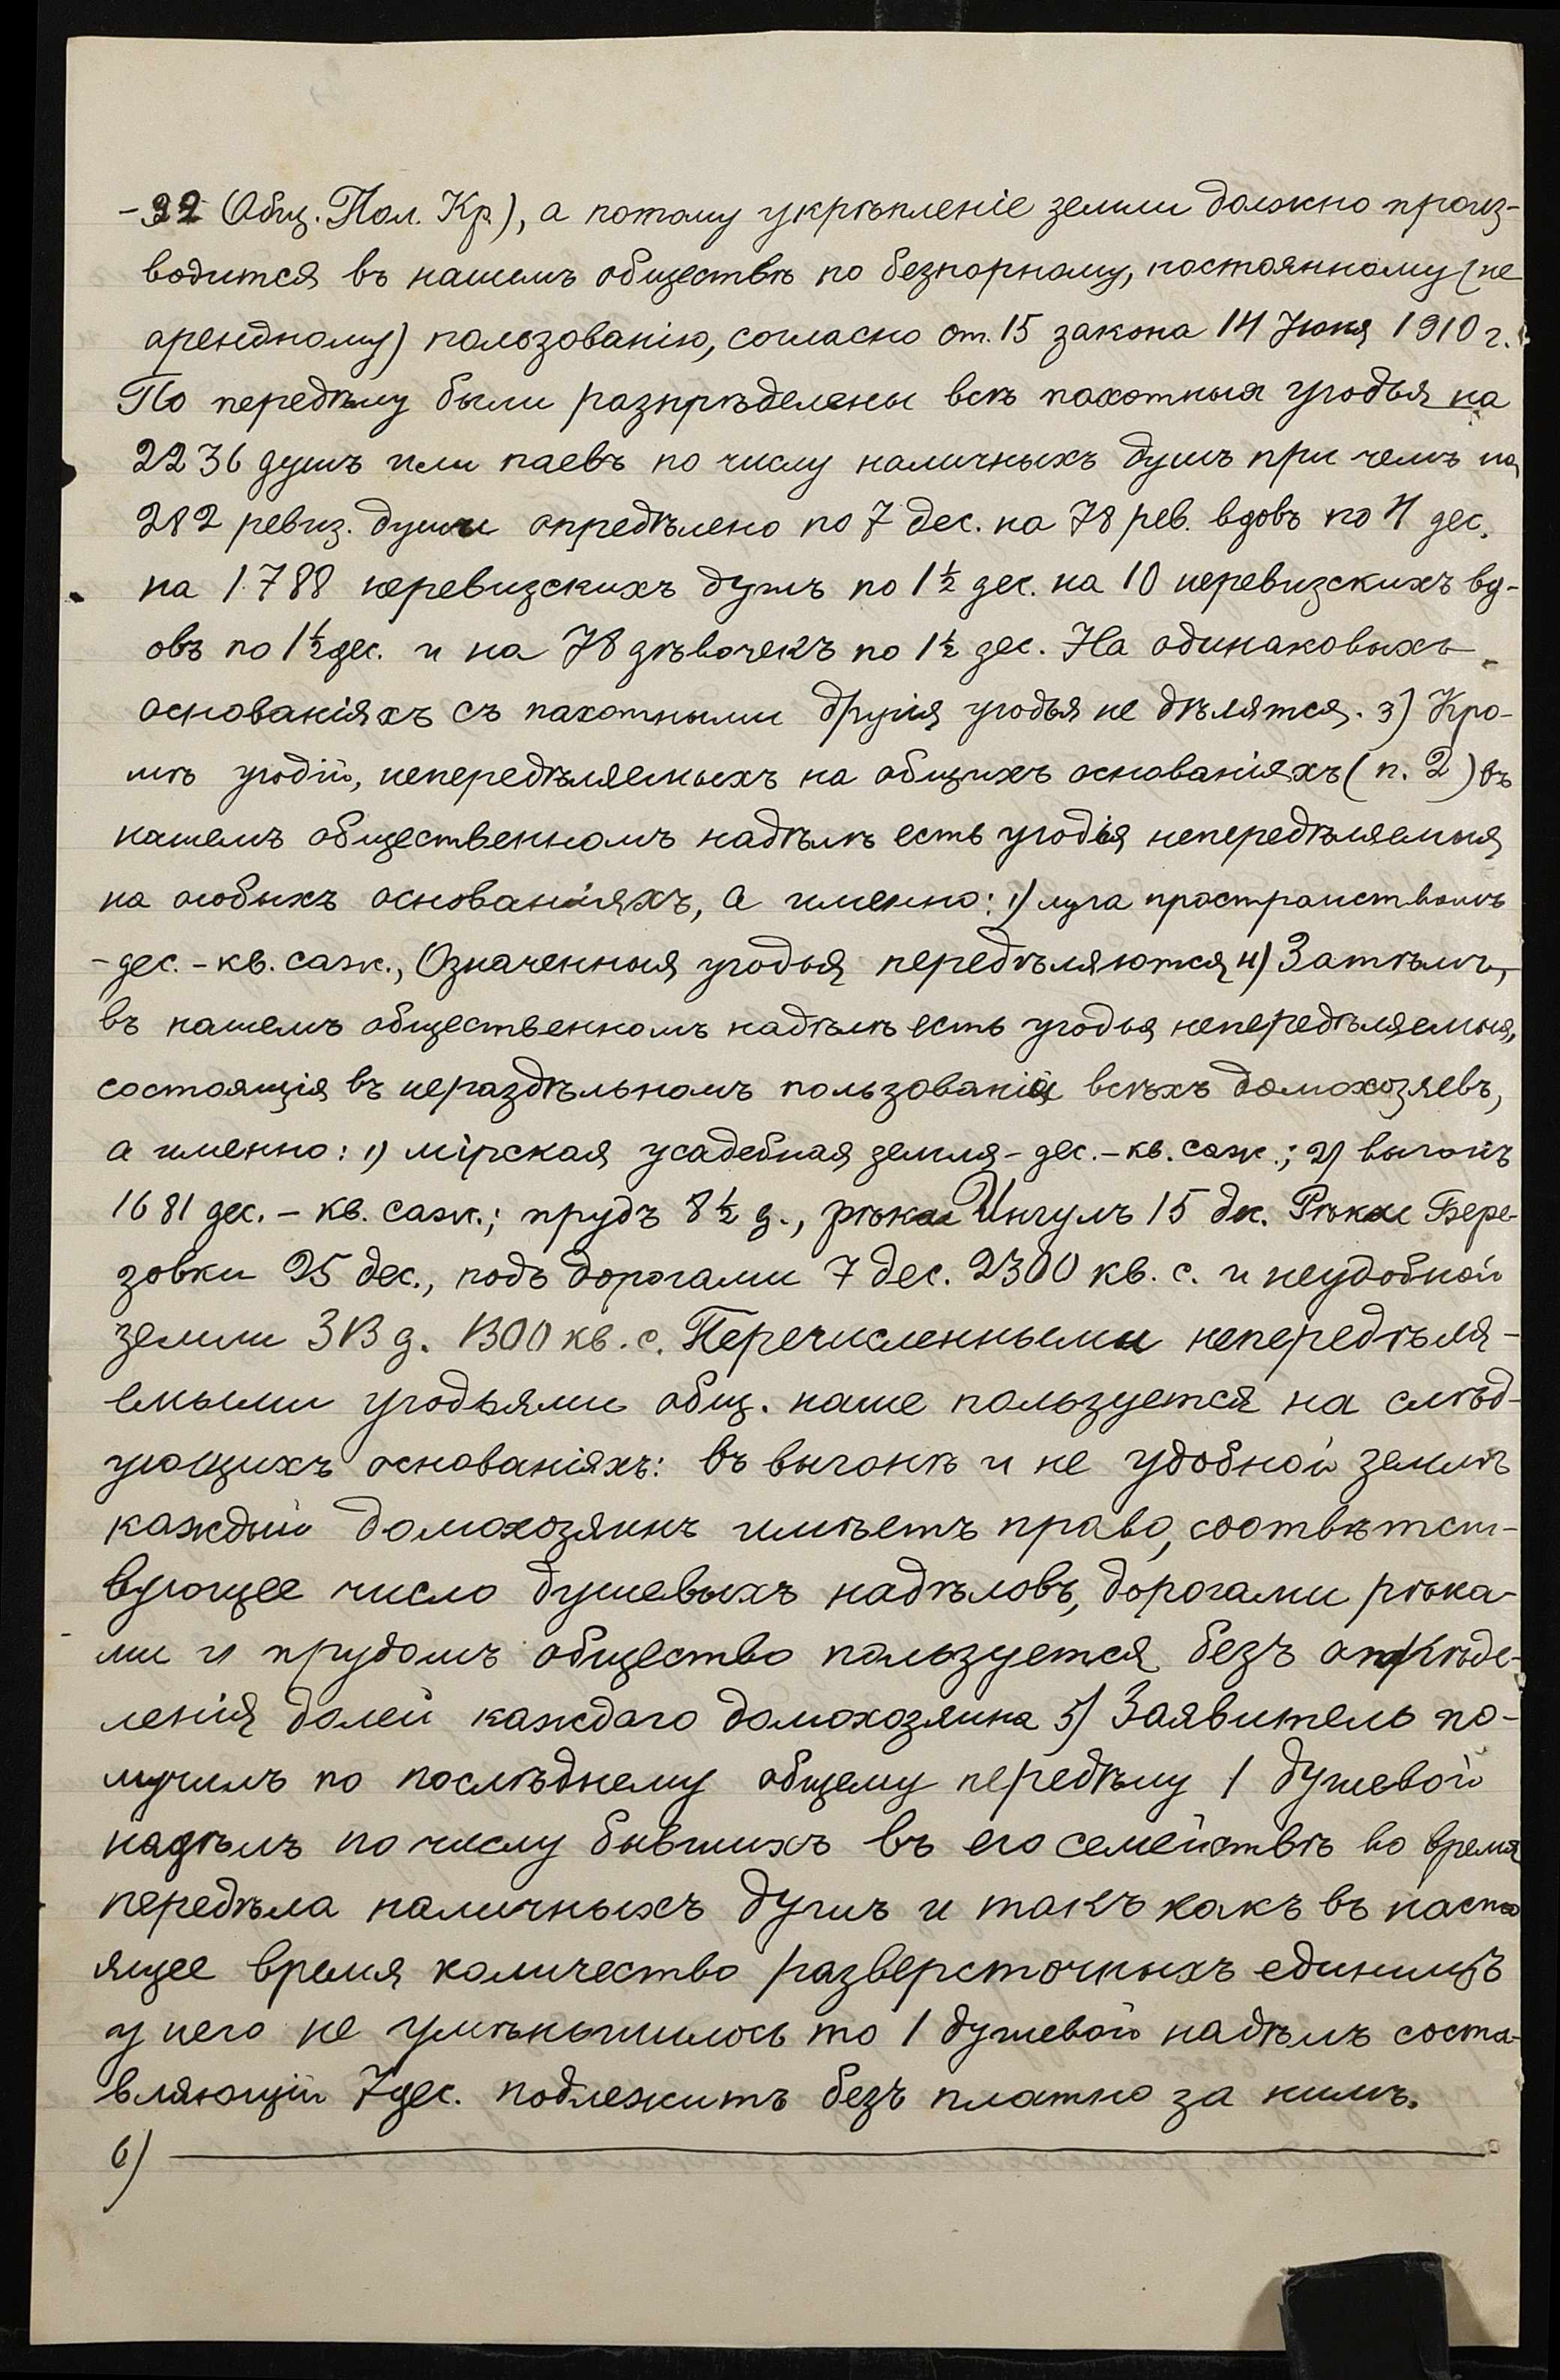 -22 Общ. Пол. Кр.), а потому укрѣпленіе земли должно произ-
водится въ нашемъ обществѣ по безпорному, постоянному (не
арендному) пользованію, согласно ст. 15 закона 14 Іюня 1910 г.
По передѣлу были разпрѣделены всѣ пахотныя угодья на
2236 душъ или паевъ по числу наличныхъ душъ при чемъ на
282 ревиз. души опредѣлено по 7 дес. на 78 рев. вдовъ по 4 дес.
на 1788 неревизскихъ душъ по 1½ дес. на 10 неревизскихъ вд-
овъ по 1½ дес. и на 78 дѣвочекъ по 1½ дес. На одинаковыхъ
основаніяхъ съ пахотными другія угодья не дѣлятся. 3) Кро-
мѣ угодій, непередѣляемыхъ на общихъ основаніяхъ (п. 2) въ
нашемъ общественномъ надѣлѣ есть угодія непередѣляемыя
на особыхъ основаніяхъ, а именно: 1) луга пространствомъ
- дес. - кв. саж., Означенныя угодья передѣляются 4) Затѣмъ,
въ нашемъ общественномъ надѣлѣ есть угодья непередѣляемыя,
состоящія въ нераздѣльномъ пользованіи всѣхъ домохозяевъ,
а именно: 1) мірская усадебная земля - дес. - кв. саж.; 2) выгонъ
1681 дес. - кв. саж.; прудъ 8½ д., рѣки Ингулъ 15 дес. Рѣки Бере-
зовки 25 дес., подъ дорогами 7 дес. 2300 кв. с. и неудобной
земли 313 д. 1300 кв. с. Перечисленными непередѣля-
емыми угодьями общ. наше пользуется на слѣд-
ующихъ основаніяхъ: въ выгонѣ и не удобной землѣ
каждый домохозяинъ имѣетъ право, соотвѣтст-
вующее число душевыхъ надѣловъ, дорогами рѣка-
ми и прудомъ общество пользуется безъ опрѣде-
ленія долей каждаго домохозяина 5) Заявитель по-
лучилъ по послѣднему общему передѣлу 1 душевой
надѣлъ по числу бывшихъ въ его семействѣ во время
передѣла наличныхъ душъ и такъ какъ въ насто
ящее время количество разверсточныхъ единицъ
у него не уменьшилось то 1 душевой надѣлъ соста-
вляющій 7 дес. подлежитъ безъ платно за нимъ.
6)